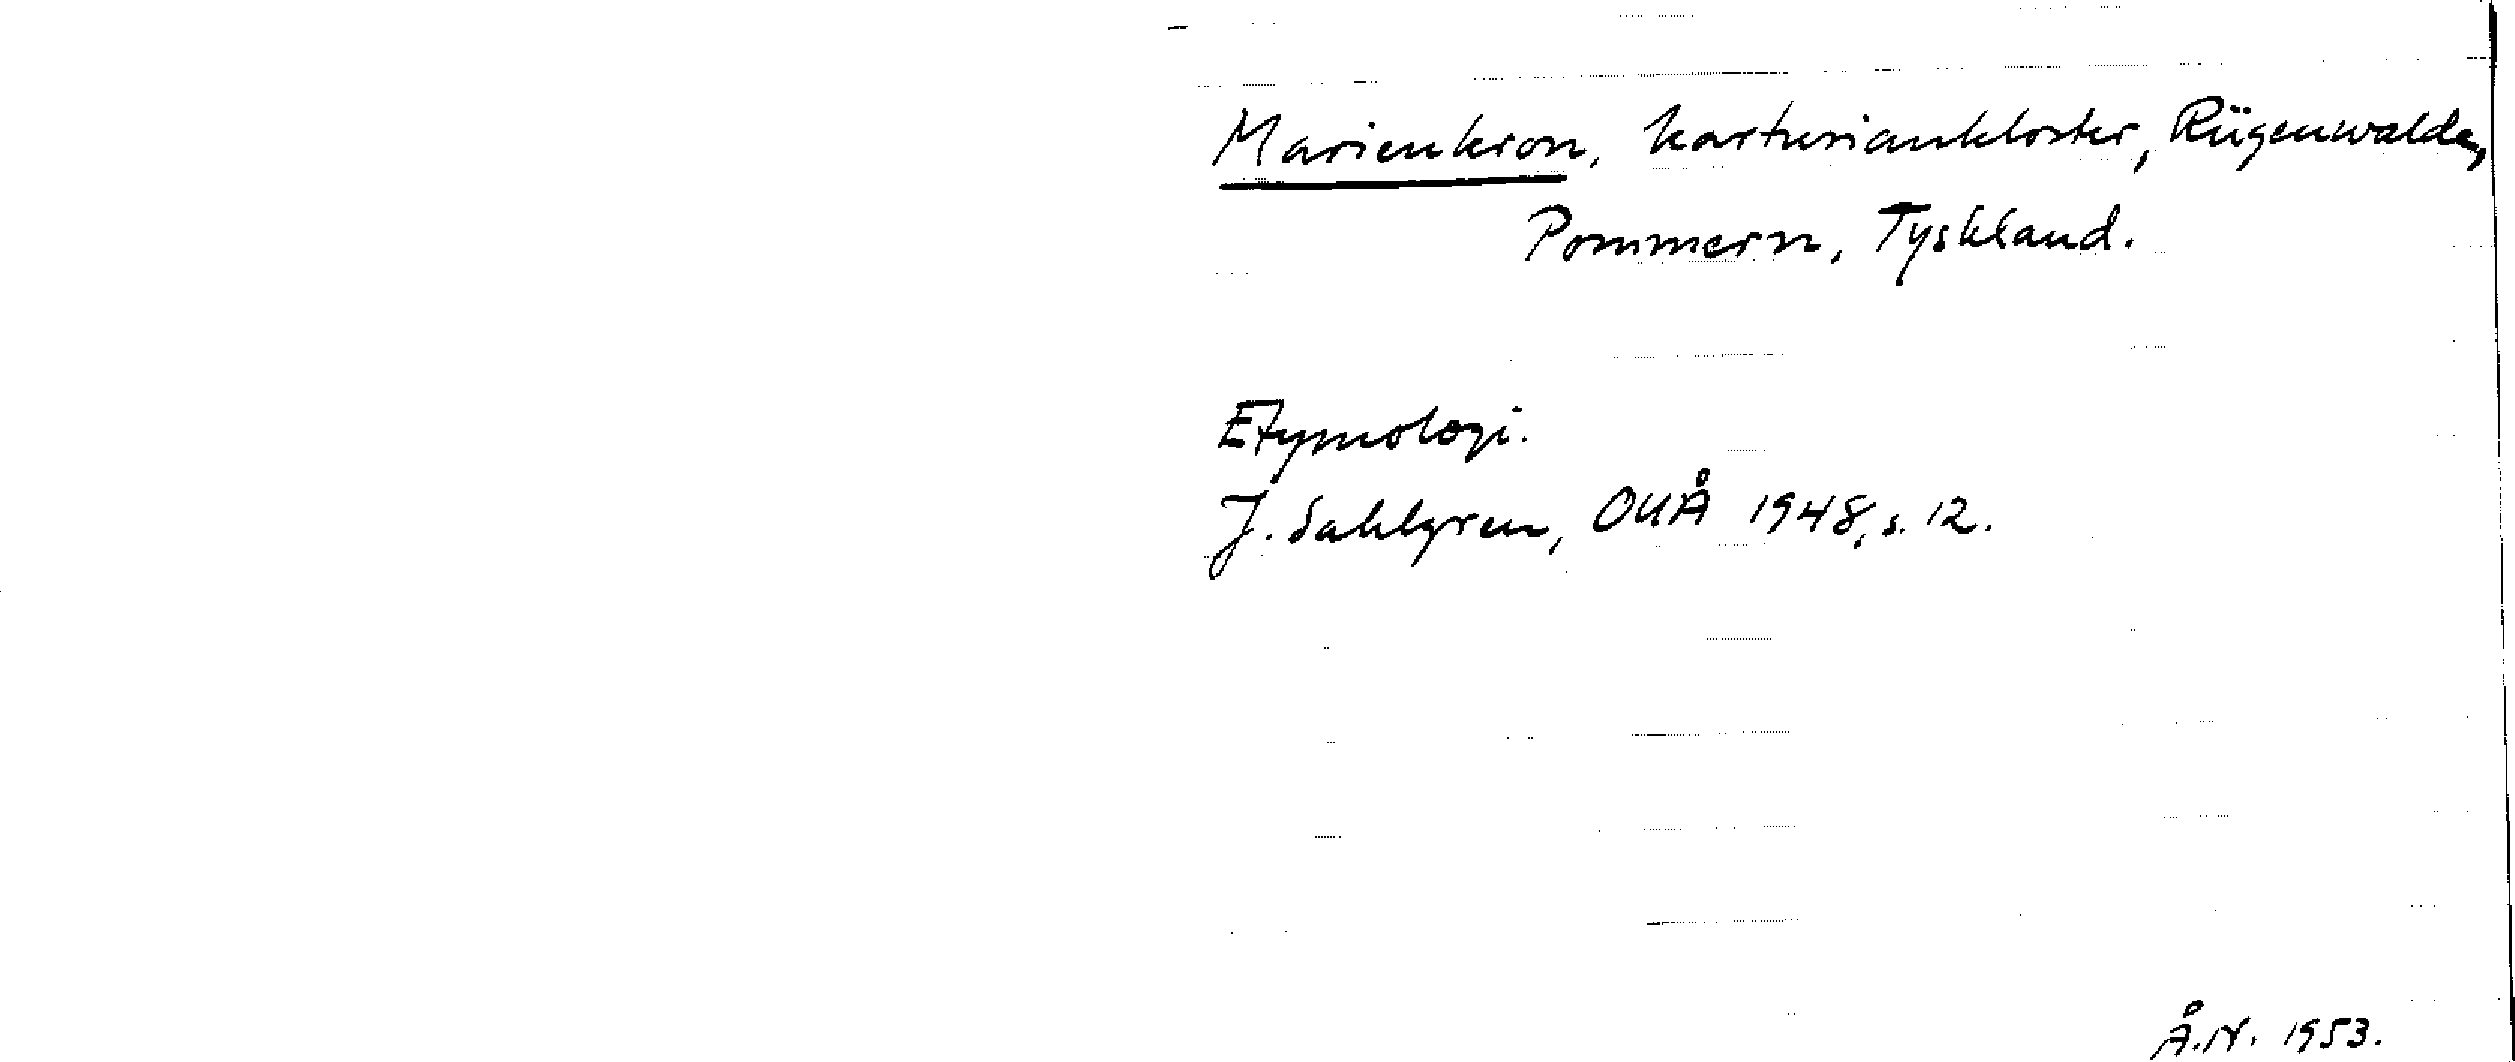 Marienkron, kartusiankloster, Rügenwalde,
Pommern, Tyskland.
Etymologi.
J. Sahlgren, OUÅ 1948, s. 12.
Å.N. 1953.